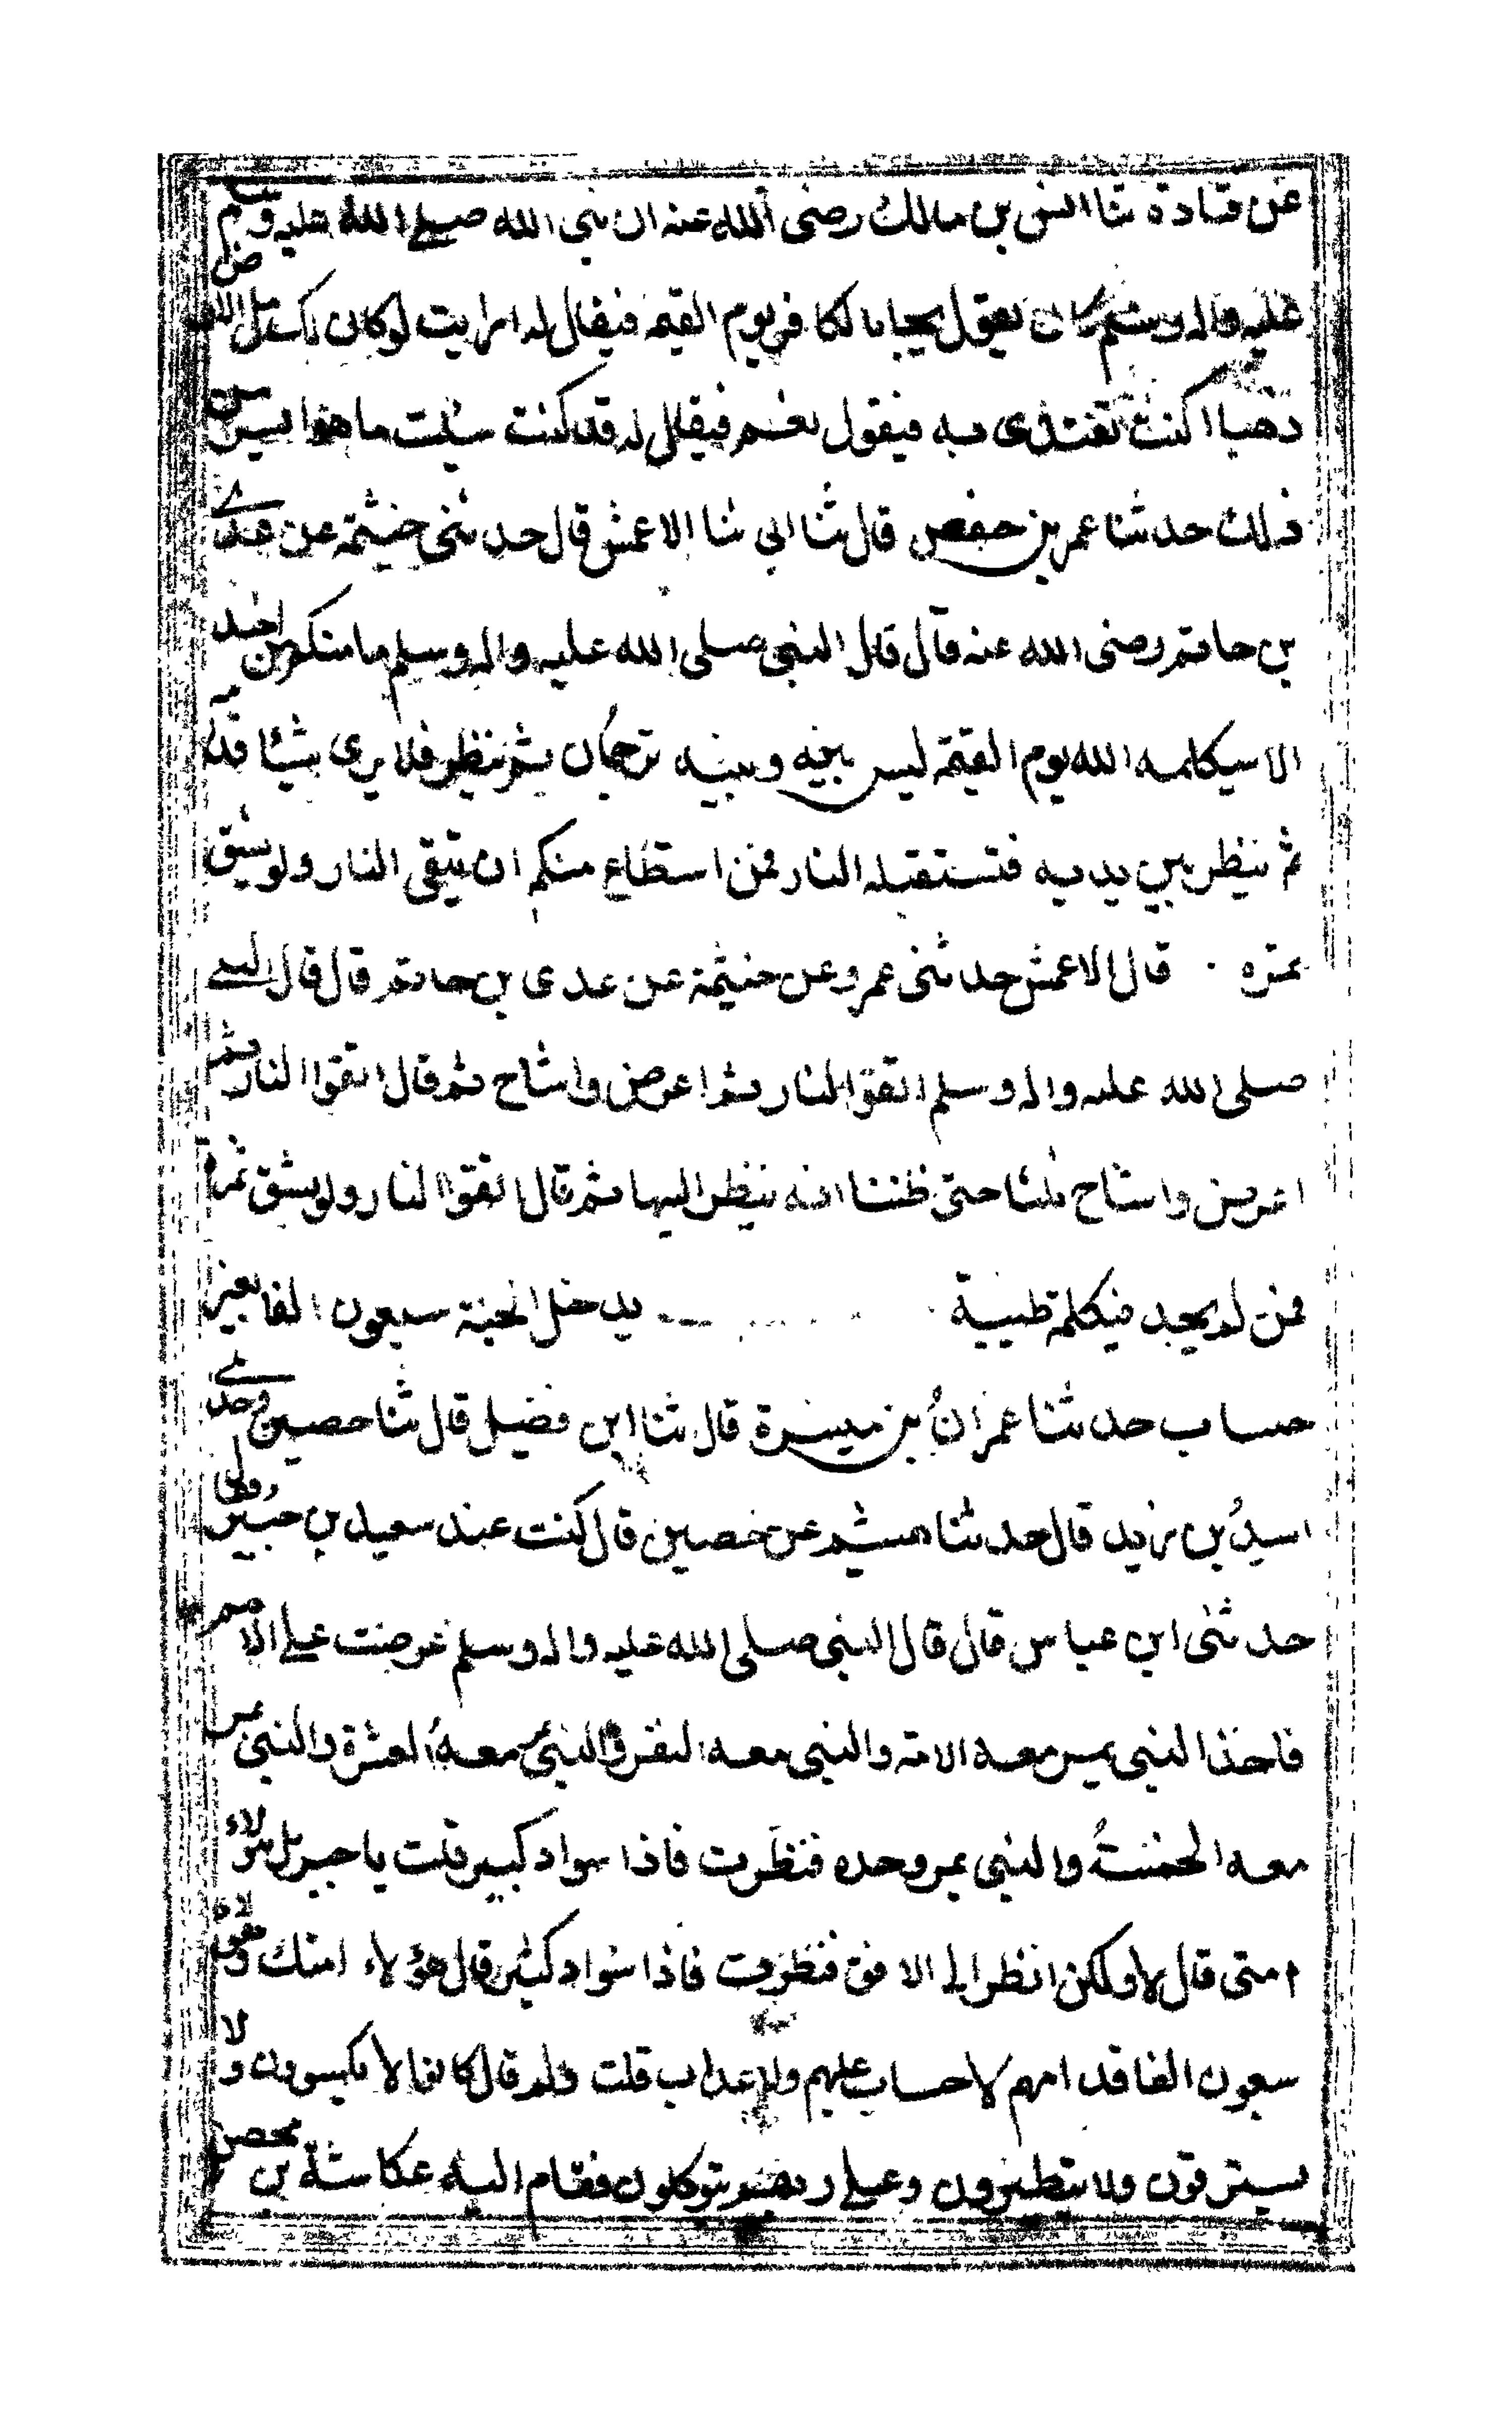 عن قتادة ثنا انس بن مالك رضى الله عنه ان نبى الله صلى الله عليه وسلم
عليه واله وسلم كان يقول يجابا لكافر يوم القيمة فيقال له ارايت لوكان لك مل الارض
ذهبا اكنت تفتدى به فيقول نعم فيقال له قد كنت سئلت ما هو ايسر من
ذلك حدثنا عمر بن حفص قال ثنا ابى ثنا الاعمش قال حدثنى خيثمة عن عدى
بن حاتم رضى الله عنه قال قال النبى صلى الله عليه واله وسلم ما منكم من احد
الا سيكلمه الله يوم القيمة ليس بينه وبينه ترجمان ثم ينظر فلا يرى شيئا قدامه
ثم ينظر بين يديه فتستقبله النار فمن استطاع منكم ان يتقى النار ولو بشق
تمرة قال الاعمش حدثنى عمرو عن خيثمة عن عدى بن حاتم قال قال النبى
صلى الله عليه واله وسلم اتقوا النار ثم اعرض واشاح ثم قال اتقوا النار ثم
اعرض واشاح ثلثا حتى ظننا انه ينظر اليها ثم قال اتقوا النار ولو بشق تمرة
فمن لم يجد فبكلمة طيبة يدخل الجنة سبعون الفا بغير
حساب حدثنا عمران بن ميسرة قال ثنا ابن فضيل قال ثنا حصين وحدثنى
اسيد بن زيد قال حدثنا هشيم عن حصين قال كنت عند سعيد بن جبير فقال
حدثنى ابن عباس قال قال النبى صلى الله عليه واله وسلم عرضت على الامم
فاخذ النبى يمر معه الامة والنبى معه النفر والنبى يمر معه العشرة والنبى يمر
معه الخمسة والنبى يمر وحده فنظرت فاذا سواد كبير قلت يا جبريل هؤلاء
امتى قال لا ولكن انظر الى الافق فنظرت فاذا سواد كثير قال هؤلاء امتك وهؤلاء
سبعون الفا قدامهم لا حساب عليهم ولا عذاب قلت ولم قال كانوا لا يكتوون ولا
يسترقون ولا يتطيرون وعلى ربهم يتوكلون فقام اليه عكاشة بن محصن